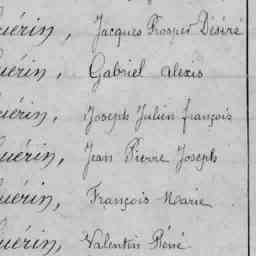 Guérin, Jacques Prosper Désiré
Guérin, Gabriel Alexis
Guérin, Joseph Julien françois
Guérin, Jean Pierre Joseph
Guérin, François Marie
Guérin, Valentin Réné